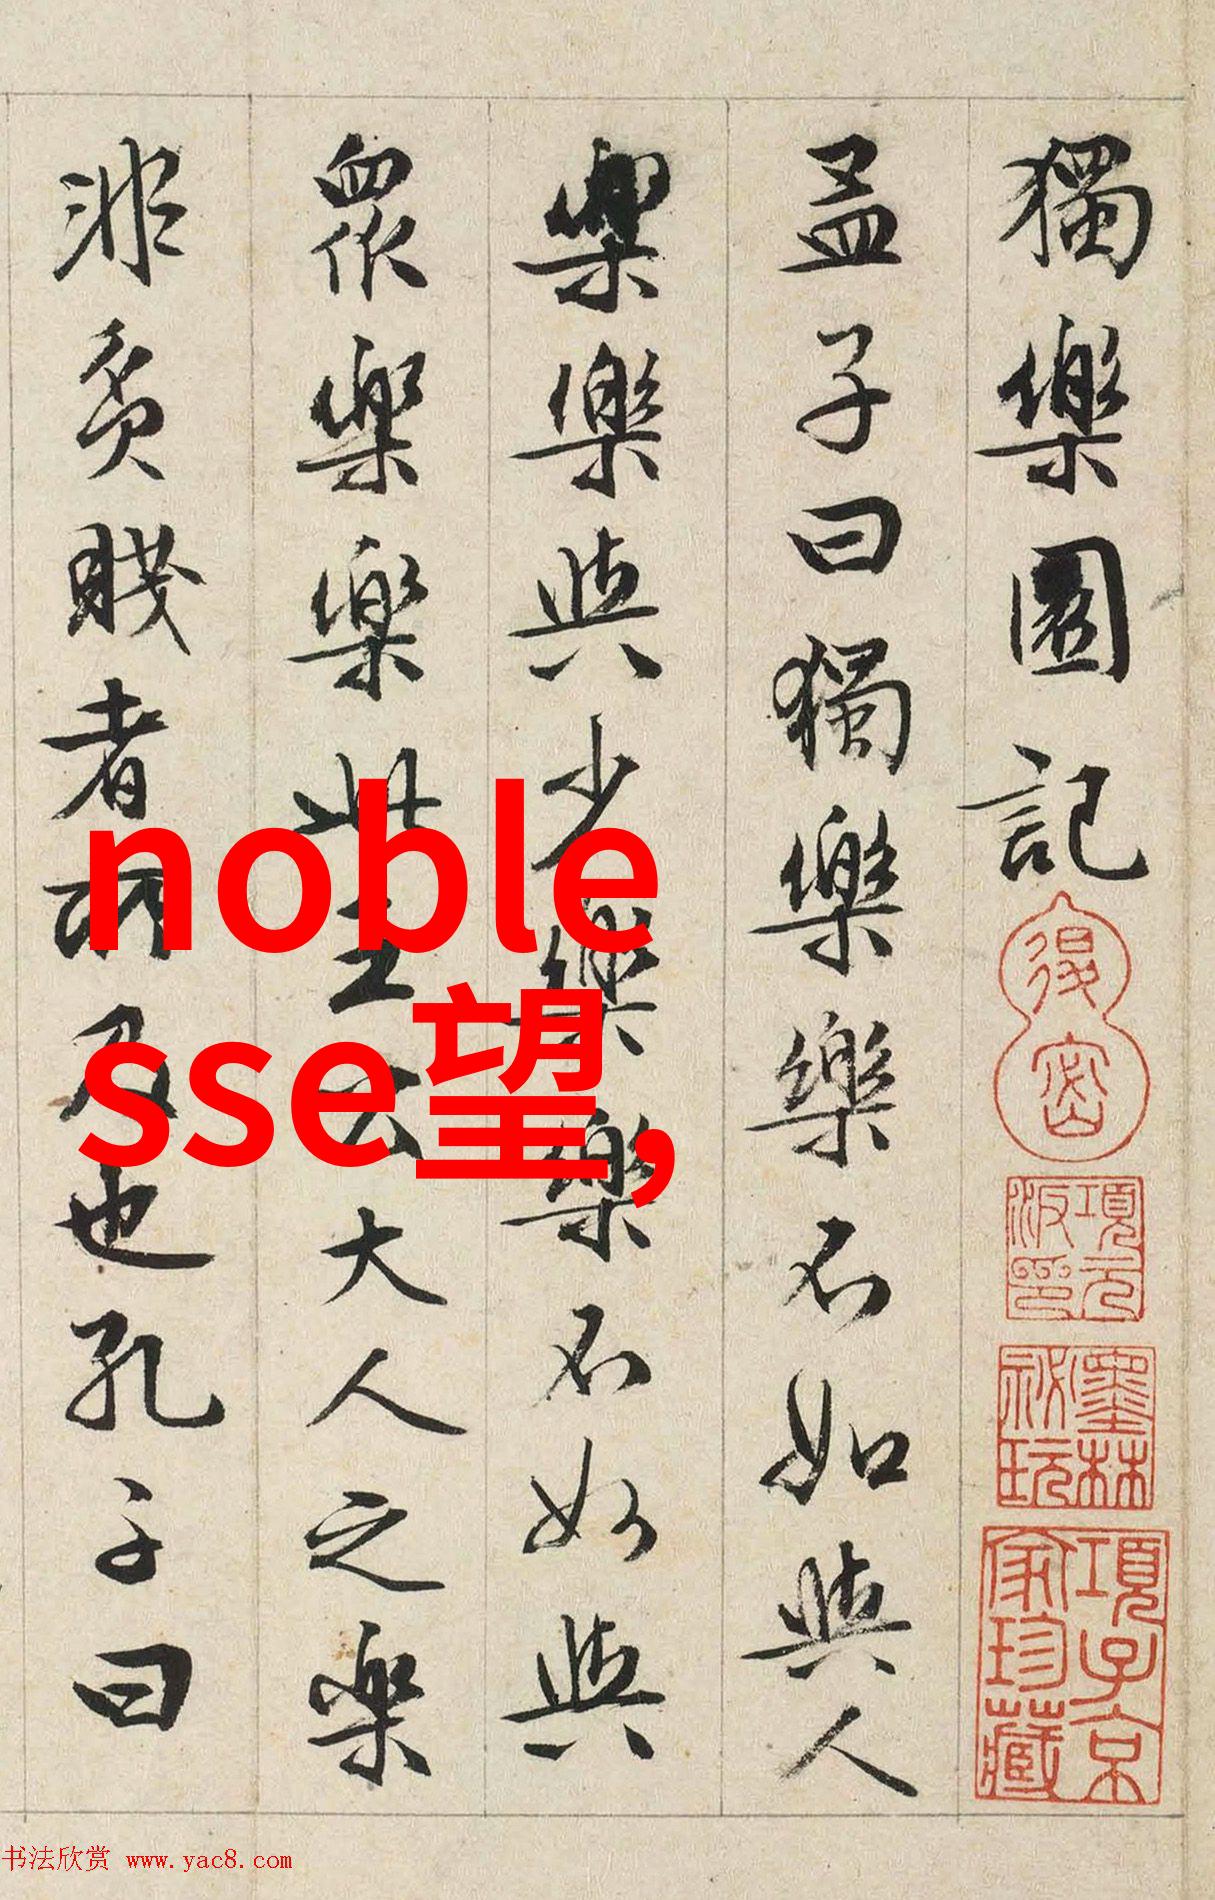 獨樂園記
退密
項元汴印
墨林秘玩
項子京家珍藏
孟子曰獨樂樂不如與人
樂樂與少樂樂不如與
衆樂樂此王公大人之樂
非貧賤者所及也孔子曰
noble
sse望,
书法欣赏 www.yac8.com